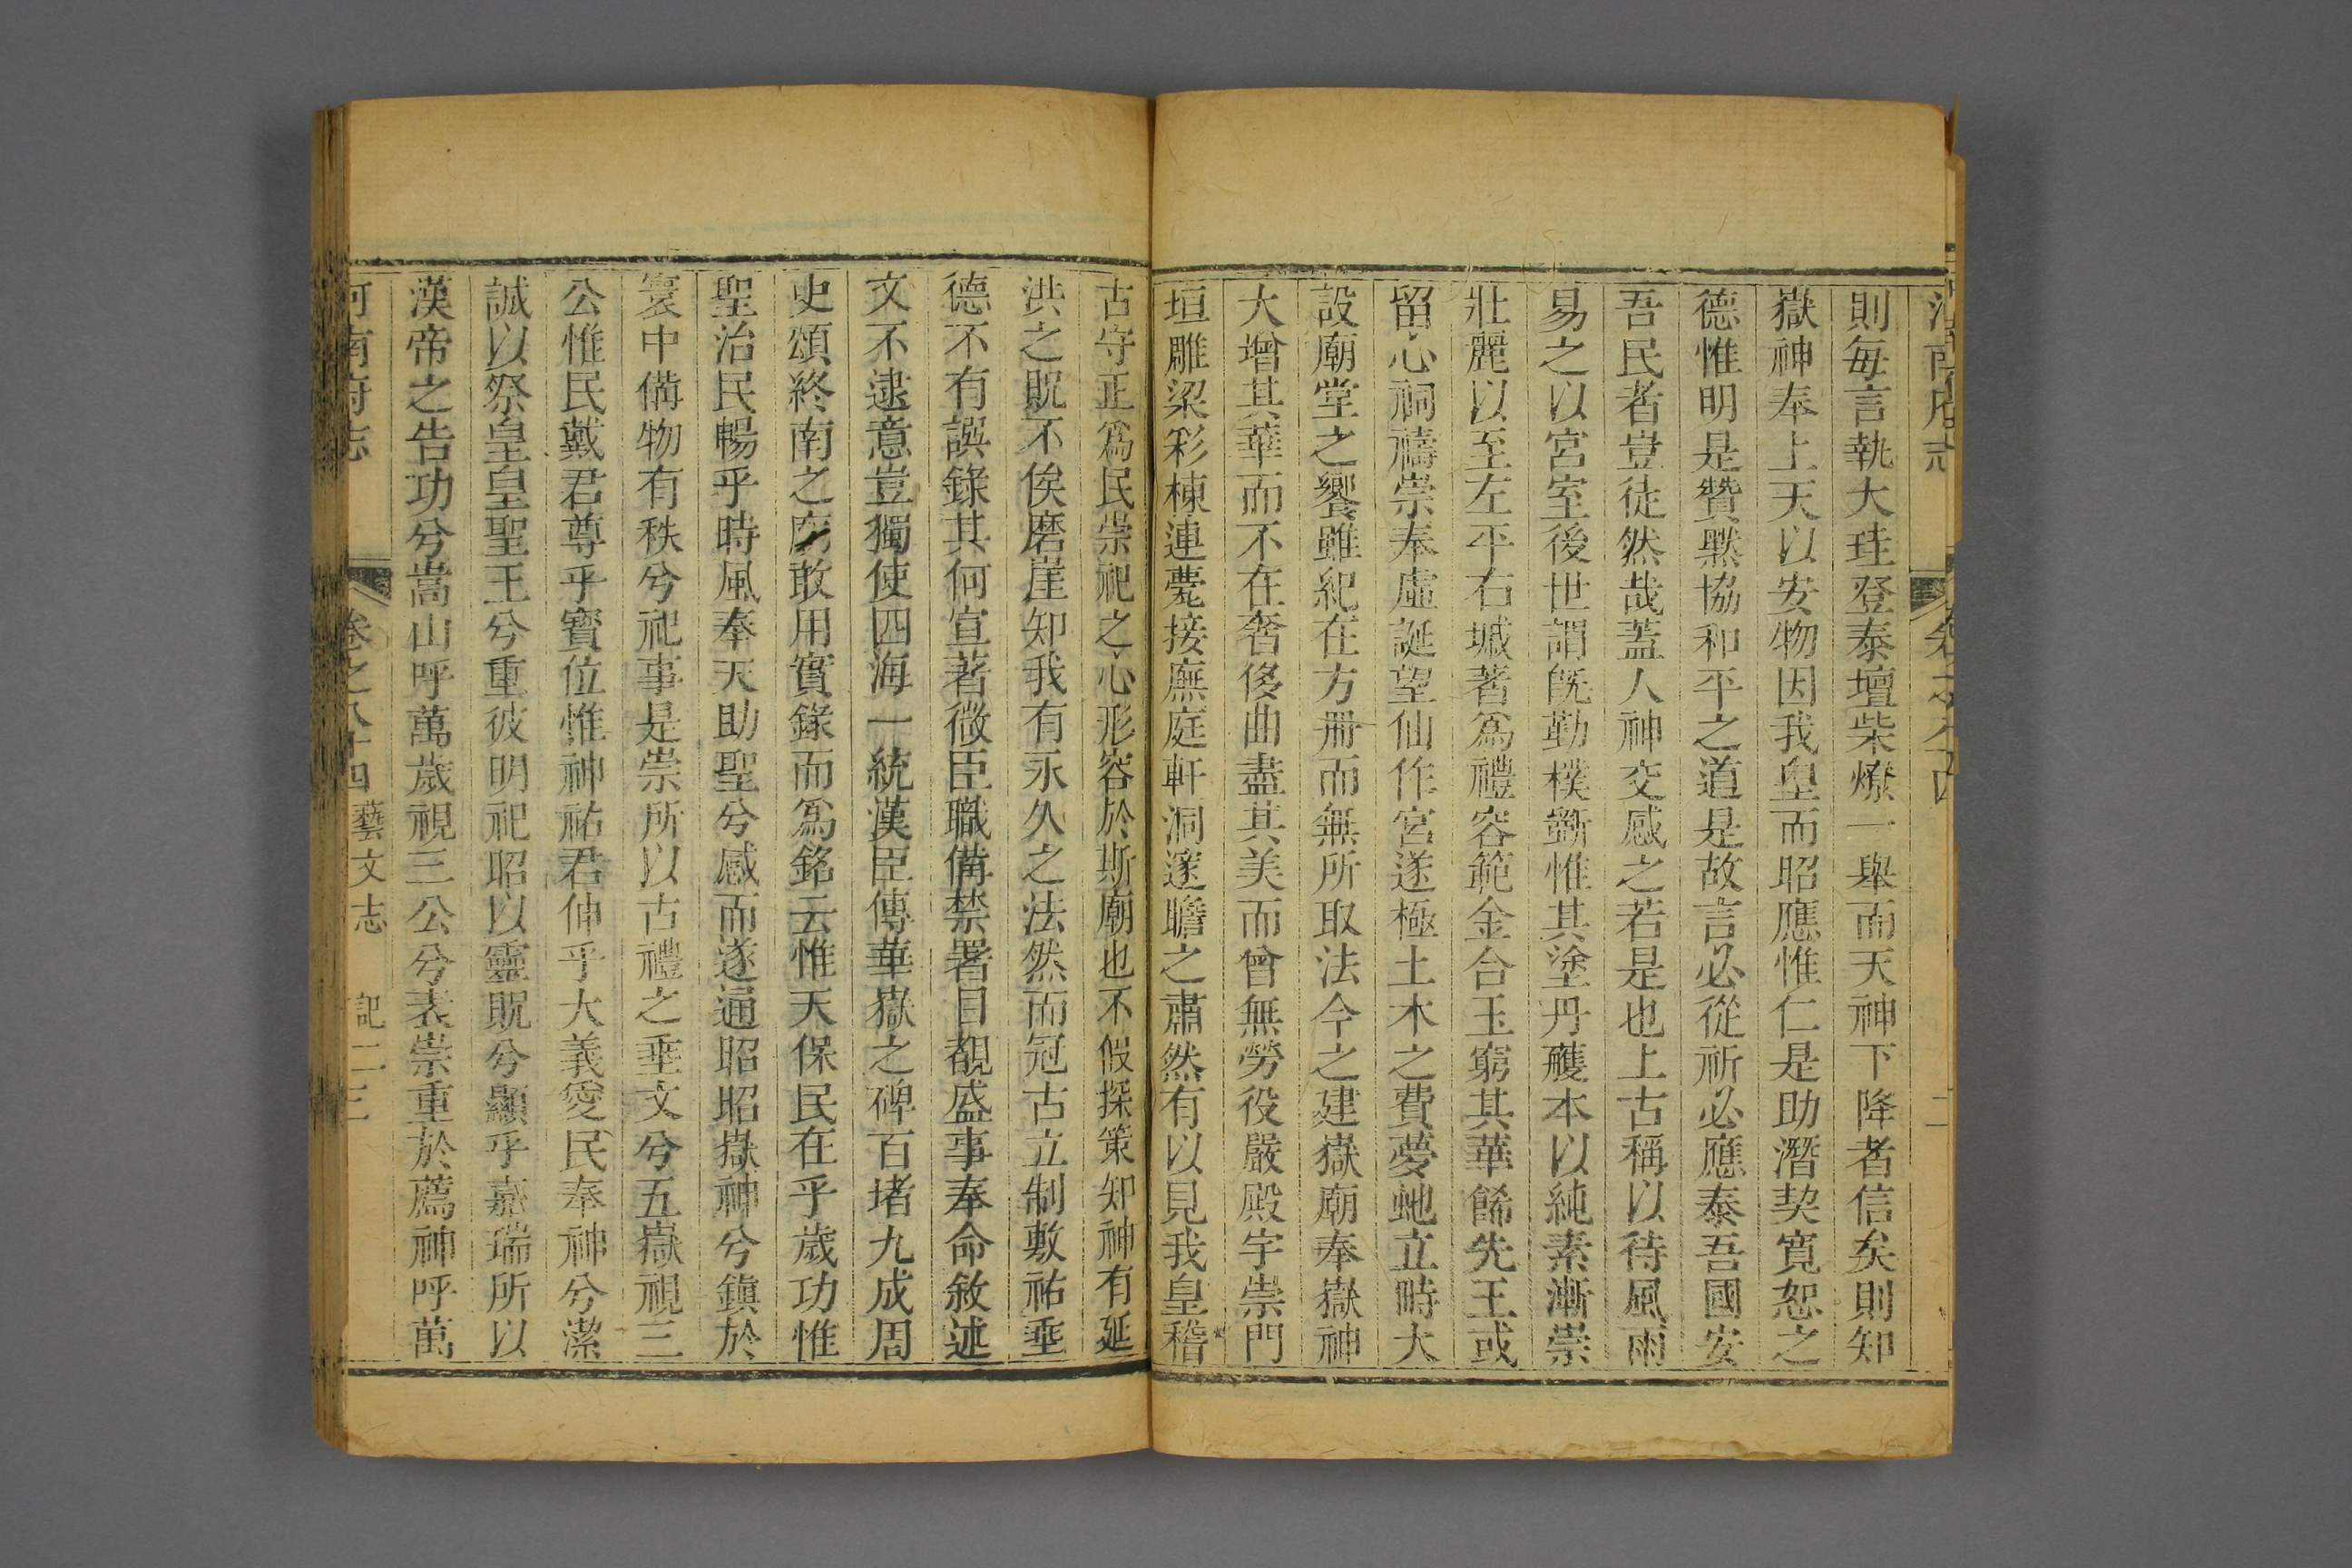 則每言執大珪登泰壇柴燎一舉而天神下降者信矣則知
嶽神奉上天以安物因我皇而昭應惟仁是助潛契寬恕之
德惟明是贊黙協和平之道是故言必從祈必應泰吾國安
吾民者豈徒然哉蓋人神交感之若是也上古稱以待風雨
易之以宮室後世謂旣勤樸斲惟其塗丹雘本以純素漸崇
壯麗以至左平右墄著爲禮容範金合玉窮其華餙先王或
留心祠禱崇奉虛誕望仙作宮遂極土木之費夢虵立畤大
設廟堂之饗雖紀在方冊而無所取法今之建嶽廟奉嶽神
大增其華而不在奢侈曲盡其美而曾無勞役嚴殿宇崇門
垣雕梁彩棟連甍接廡庭軒洞邃瞻之肅然有以見我皇稽
古守正爲民崇祀之心形容於斯廟也不假探策知神有延
洪之貺不俟磨崖知我有永久之法然而冠古立制敷祐垂
德不有譔錄其何宣著微臣職備禁署目覩盛事奉命敘述
文不逮意豈獨使四海一統漢臣傳華嶽之碑百堵九成周
史頌終南之廟敢用實錄而爲銘云惟天保民在乎歲功惟
聖治民暢乎時風奉天助聖兮感而遂通昭昭嶽神兮鎭於
寰中備物有秩兮祀事是崇所以古禮之垂文兮五嶽視三
公惟民戴君尊乎寶位惟神祐君伸乎大義愛民奉神兮潔
誠以祭皇皇聖王兮重彼明祀昭以靈貺兮顯乎嘉瑞所以
漢帝之告功兮嵩山呼萬歲視三公兮表崇重於薦神呼萬
河南府志 卷之八十四 藝文志 記 二三